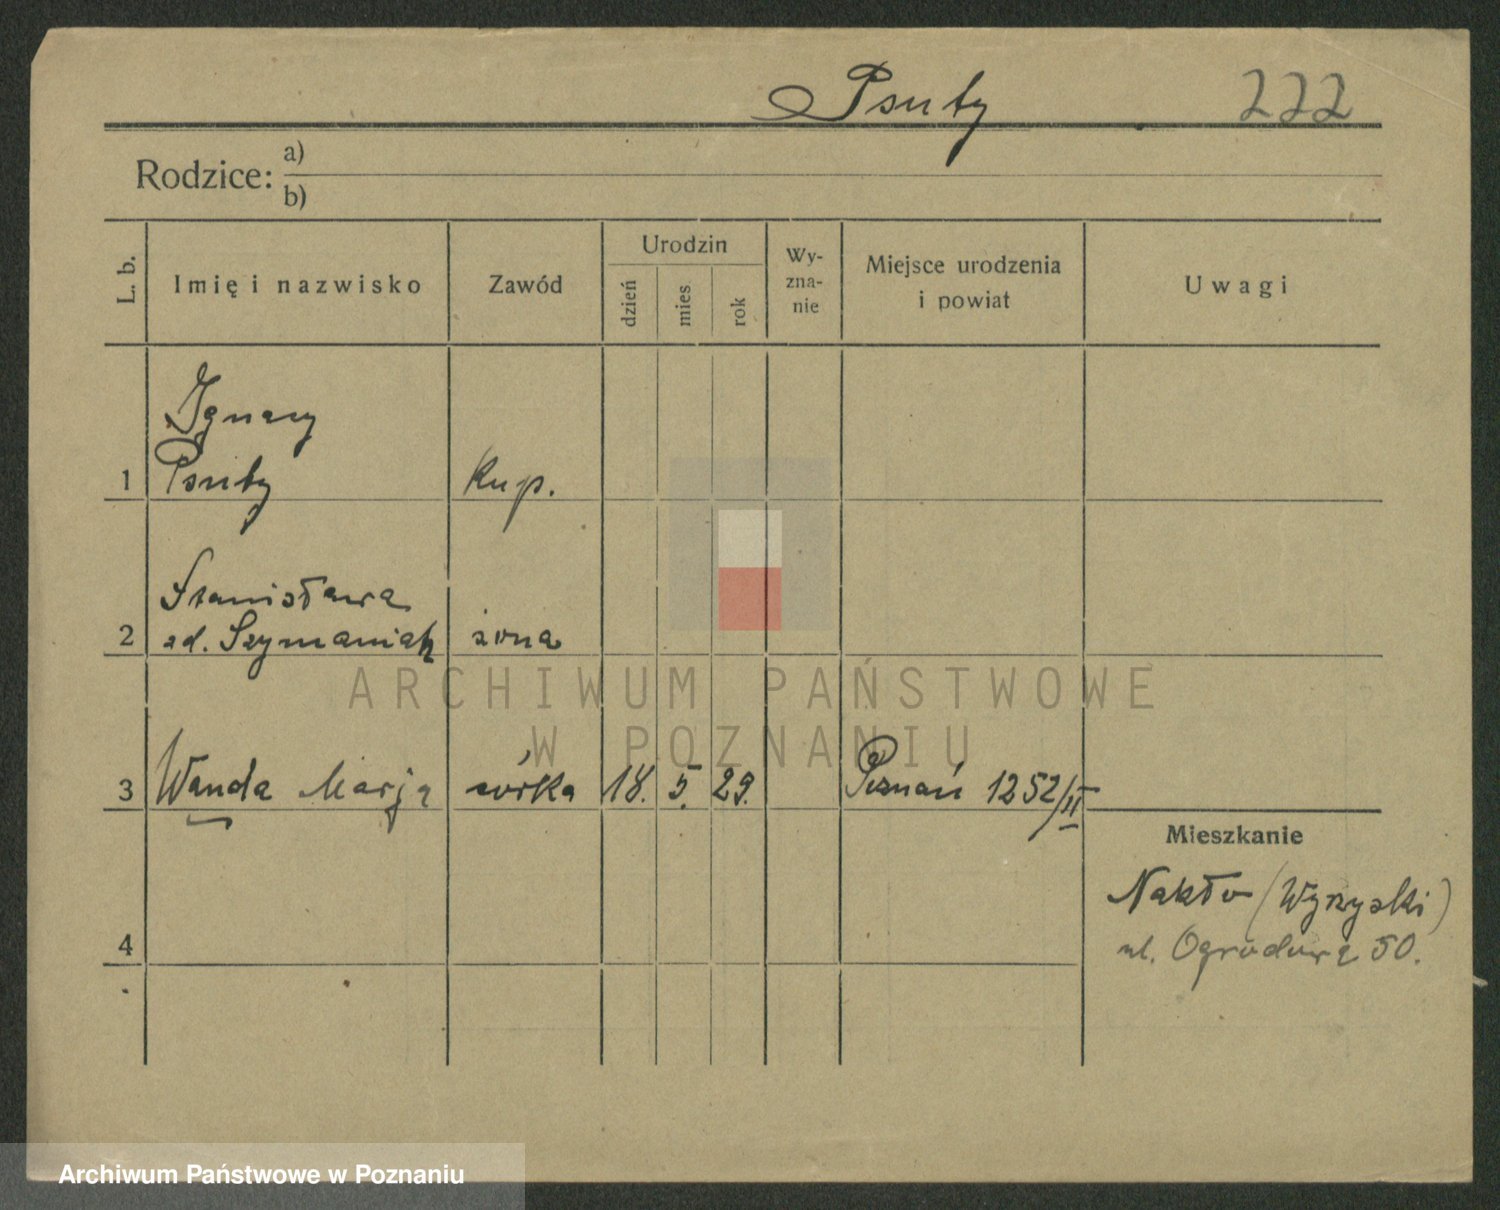 Psuty 222
Rodzice: a)
b)
L. b. Imię i nazwisko Zawód Urodzin dzień mies rok Wy-zna-nie Miejsce urodzenia i powiat Uwagi
Ignacy
1 Psuty Kup.
Stanisława
2 zd. Szymaniak żona
3 Wanda Marja córka 18. 5. 29. Poznań 1252/II
Mieszkanie
Nakło (Wyrzyski)
4 ul. Ogrodowa 50.
ARCHIWUM PAŃSTWOWE
W POZNANIU
Archiwum Państwowe w Poznaniu